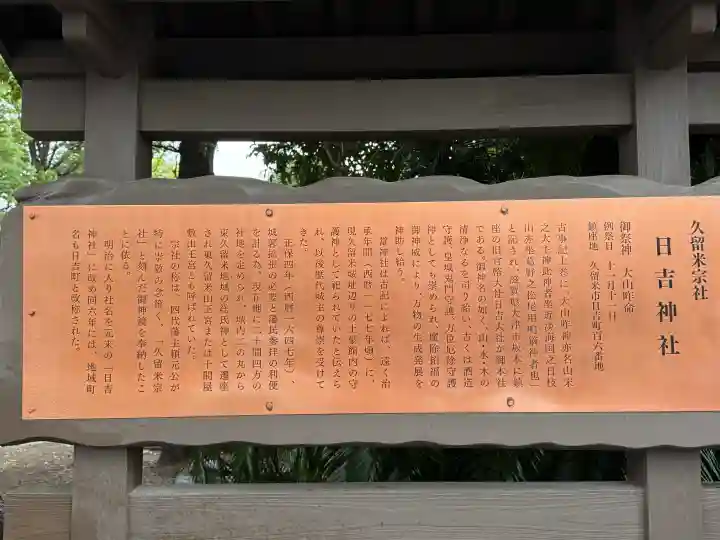 久留米宗社
日吉神社
御祭神 大山咋命
例祭日 十二月十二日
鎮座地 久留米市日吉町百六番地
古事記上巻に「大山咋神亦名山末
之大主神此神者坐近淡海国之日枝
山亦坐葛野之松尾用鳴鏑神者也」
と記され、滋賀県大津市坂本に鎮
座の旧官幣大社日吉大社が御本社
である。御神名の如く、山・水・木の
清浄なるを司り給い、古くは酒造
守護、皇城鬼門守護、方位厄除守護
神としても崇められ、魔除招福の
御神威により、万物の生成発展を
神助し給う。
當神社は古記によれば、遠く治
承年間(西暦一一七七年頃)に、
現久留米城址辺りの土豪館内の守
護神として祀られていたと伝えら
れ、以後歴代城主の尊崇を受けて
きた。
正保四年(西暦一六四七年)、
城郭拡張の必要と藩民参拝の利便
を計る為、現在地に二十間四方の
社地を定められ、城内二の丸から
東久留米地域の総氏神として遷座
され東久留米山王宮または十間屋
敷山王宮とも呼ばれていた。
宗社の称は、四代藩主頼元公が
特に崇敬の念篤く、「久留米宗
社」と刻んだ御神鏡を奉納したこ
とに依る。
明治に入り社名を元来の「日吉
神社」に改め同六年には、地域町
名も日吉町と改称された。